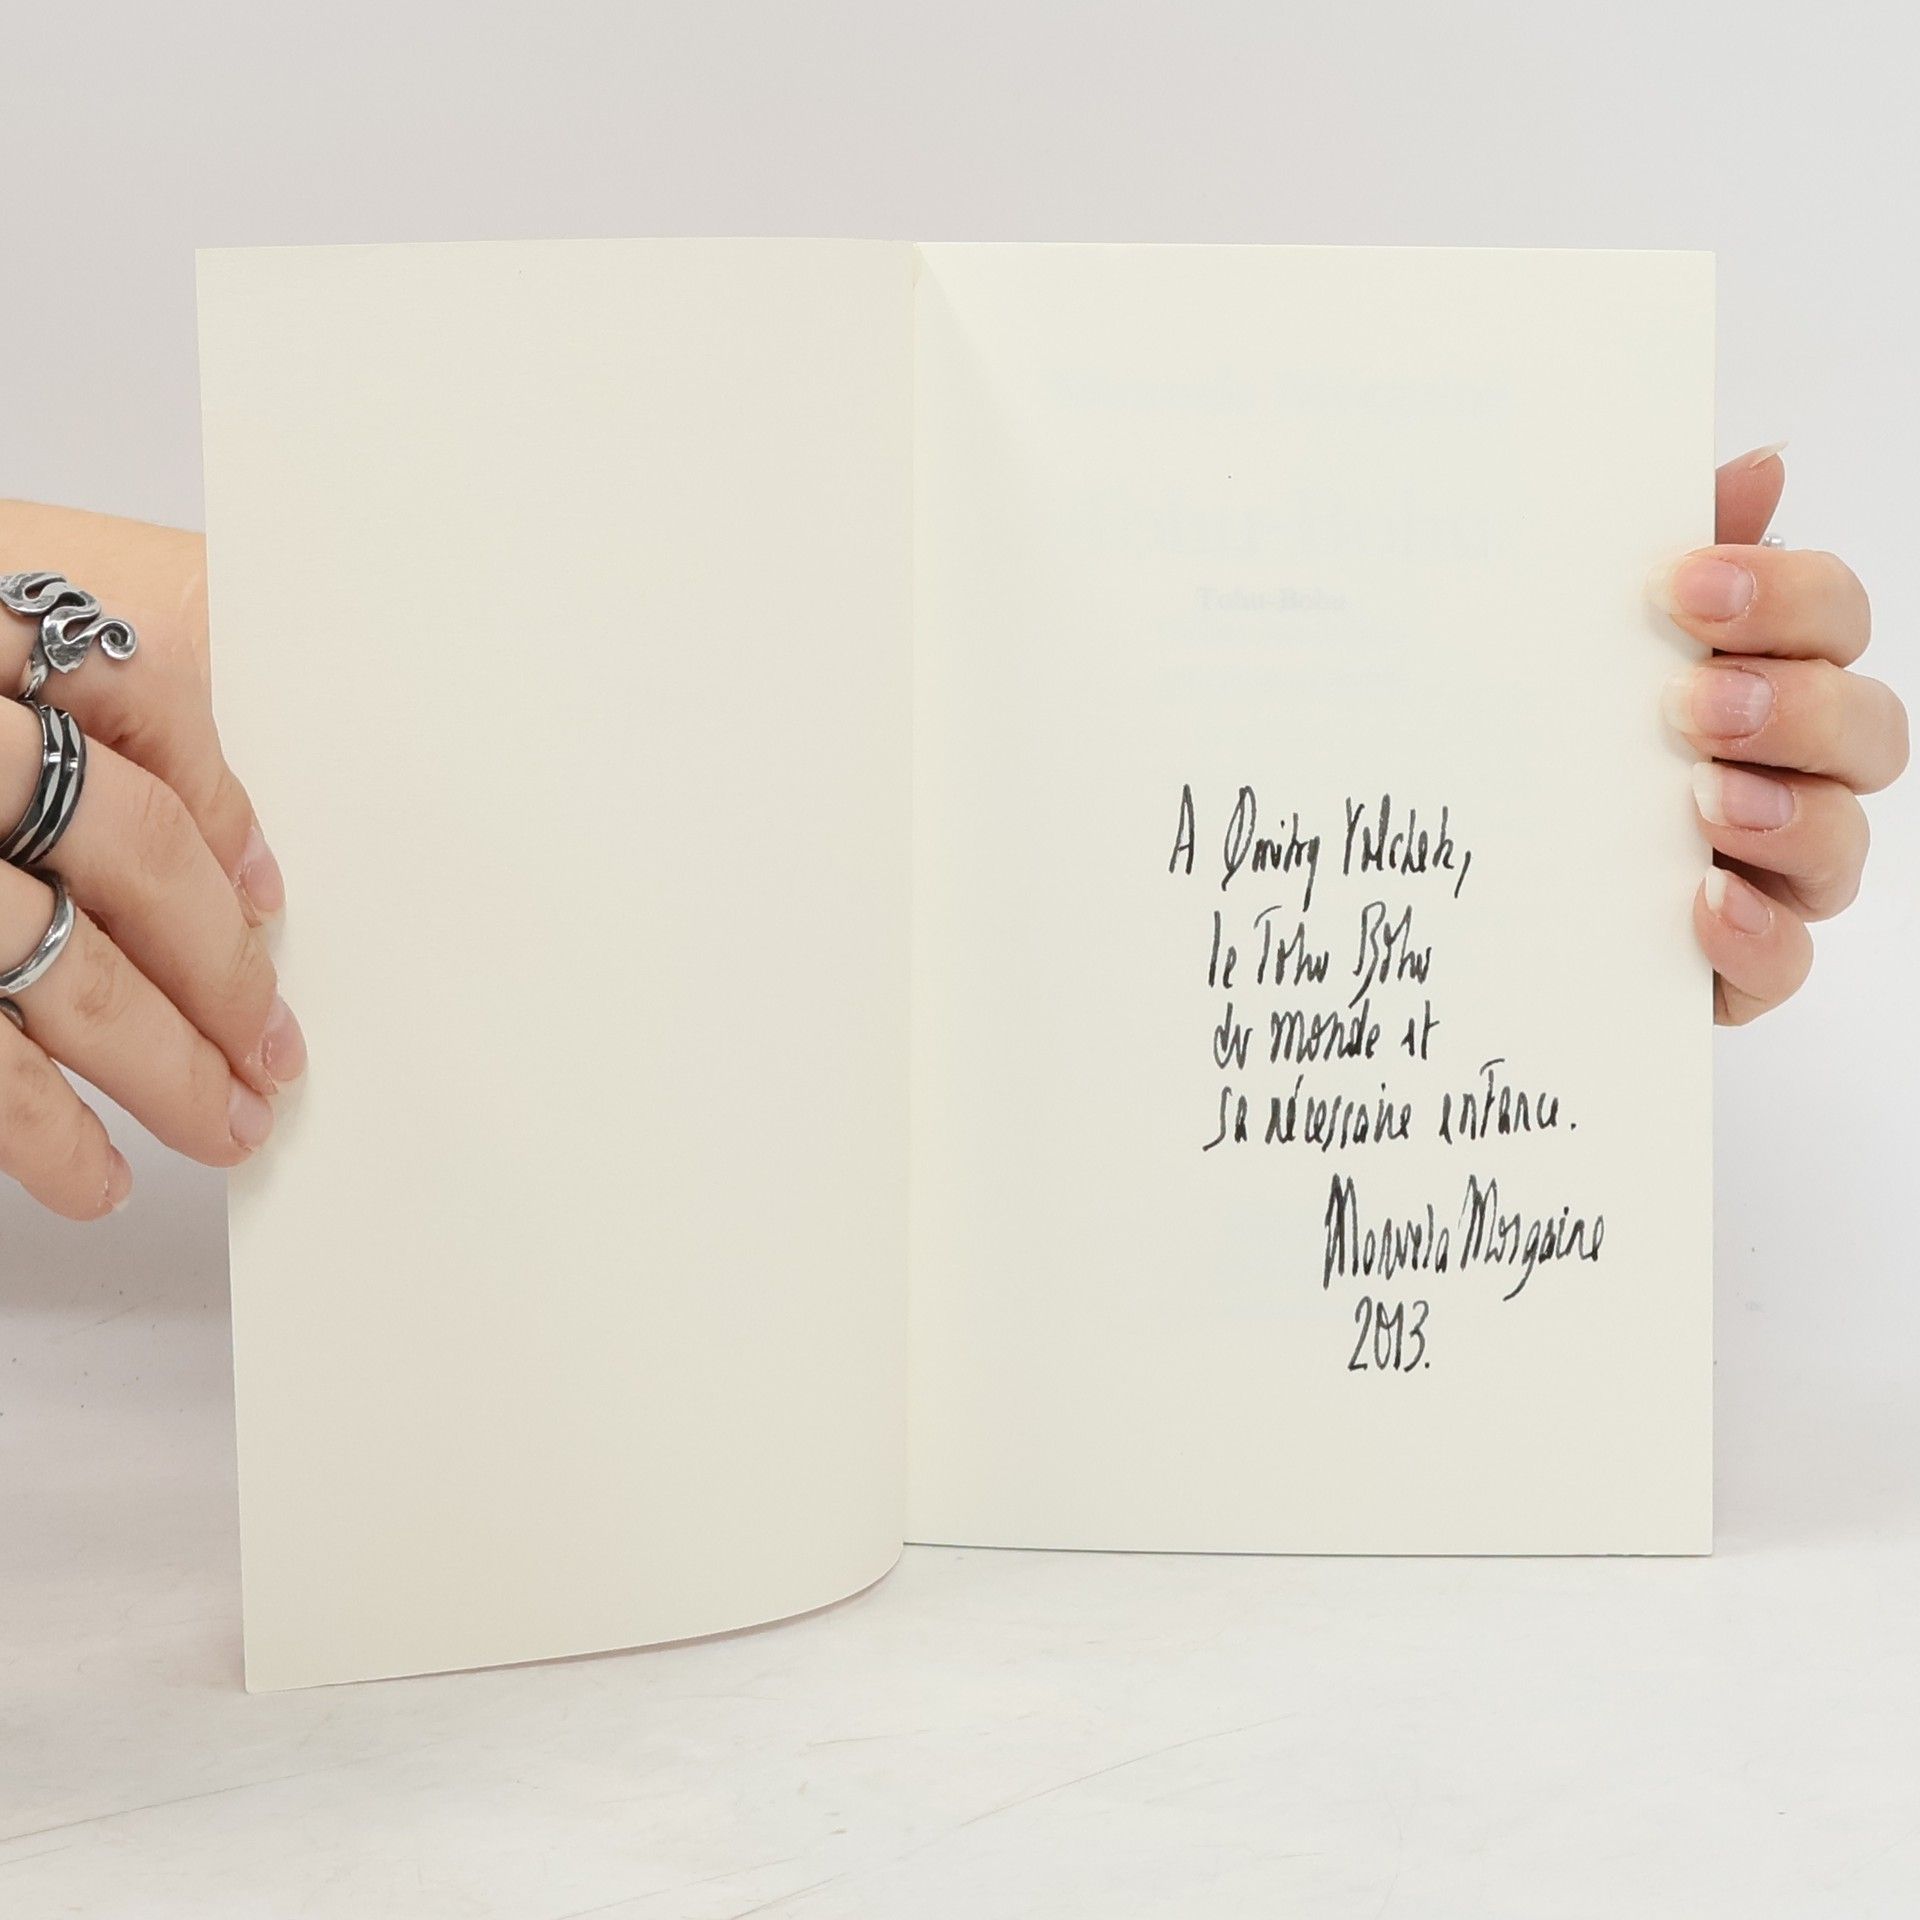 Tohu-Bohu
A Dmitry Volchek,
le Tohu Bohu
du monde et
sa nécessaire enfance.
Manuela Morgaine
2013.